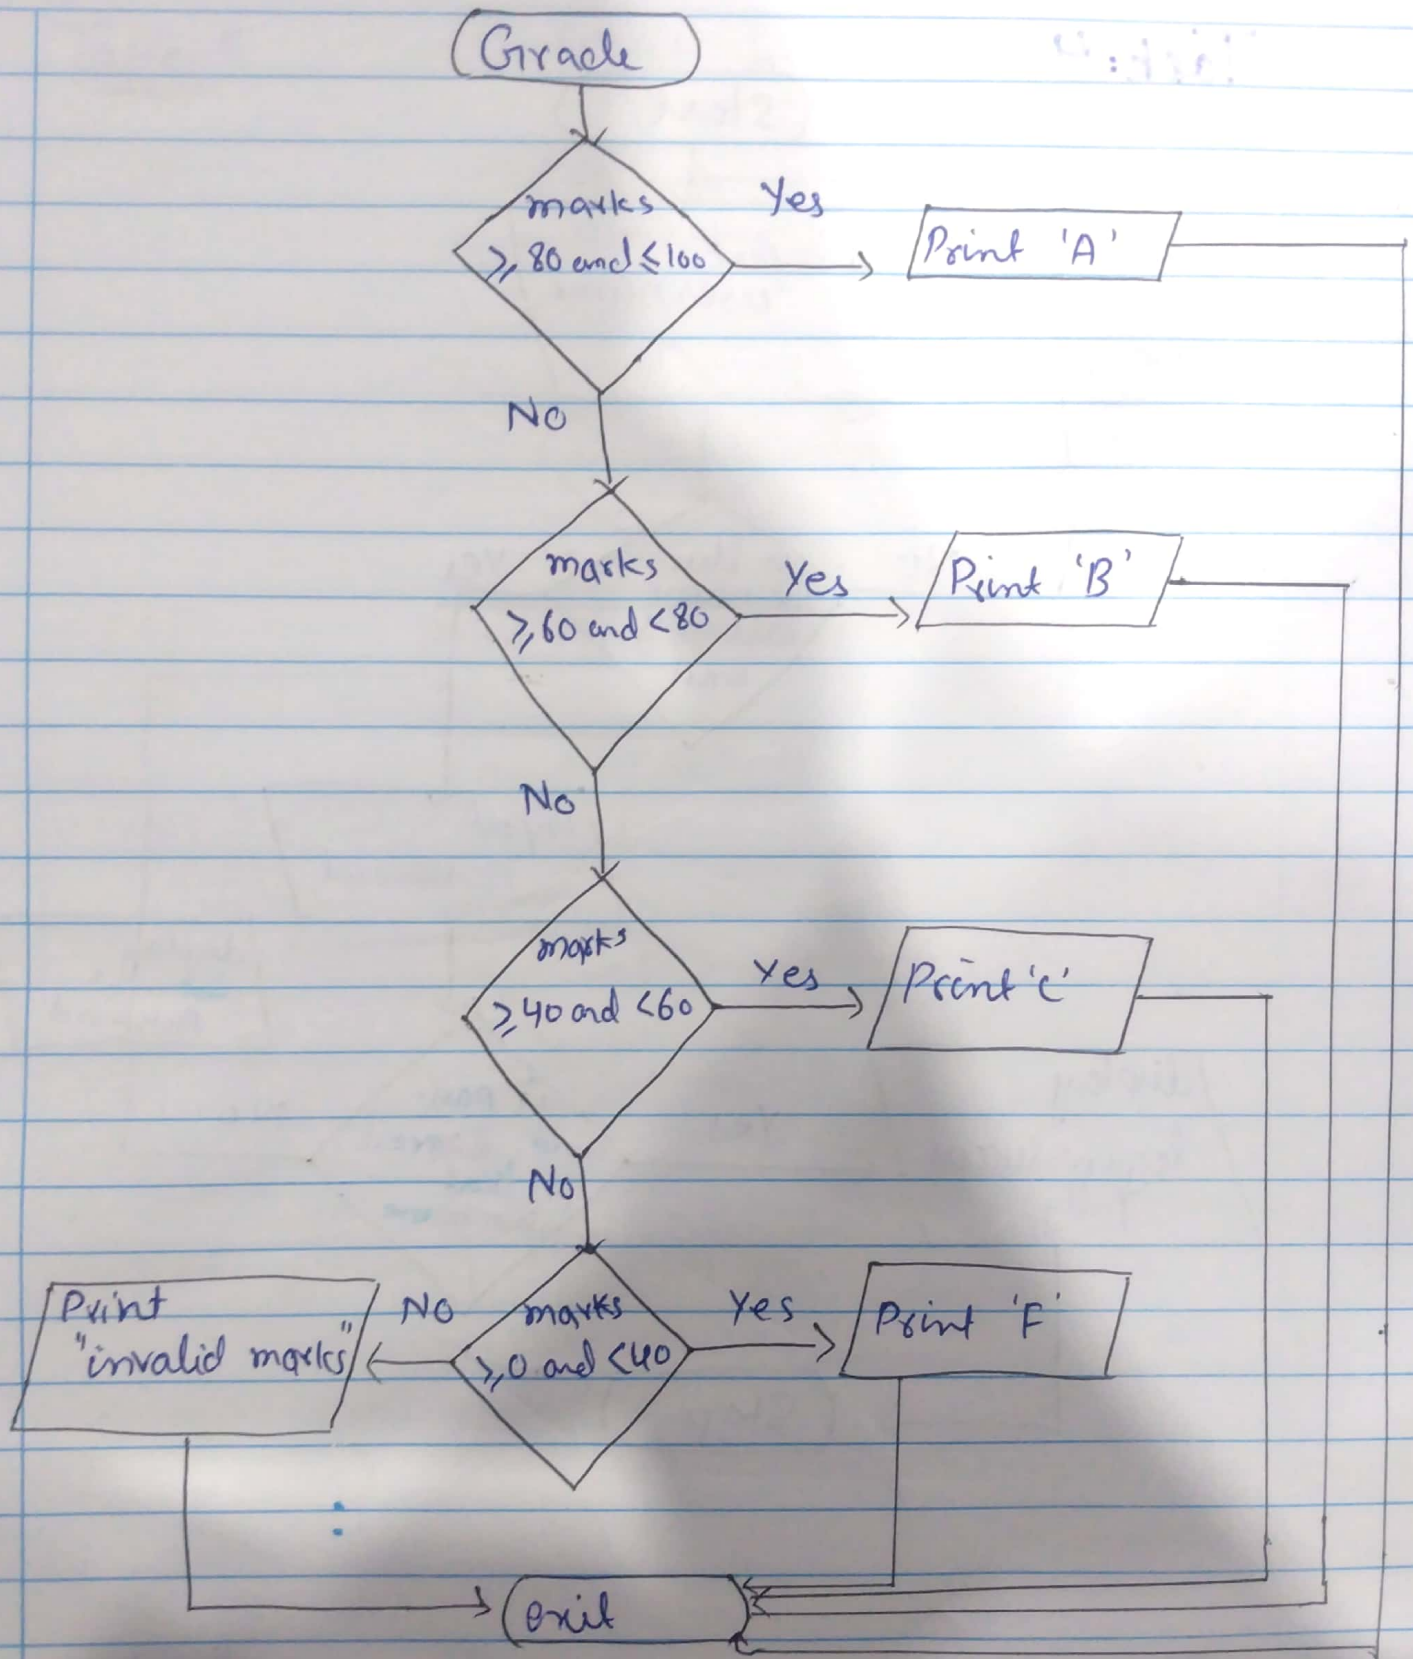 Grade
marks
≥ 80 and ≤ 100
Yes
Print 'A'
No
marks
≥ 60 and < 80
Yes
Print 'B'
No
marks
≥ 40 and < 60
Yes
Print 'C'
No
marks
≥ 0 and < 40
Yes
Print 'F'
No
Print
"invalid marks"
exit